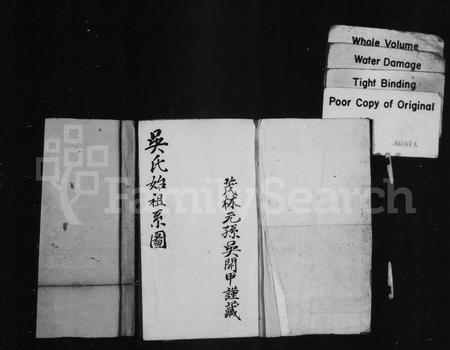 Whole Volume
Water Damage
Tight Binding
Poor Copy of Original
吳氏始祖系圖
茂林元孫吳開甲謹藏
FamilySearch